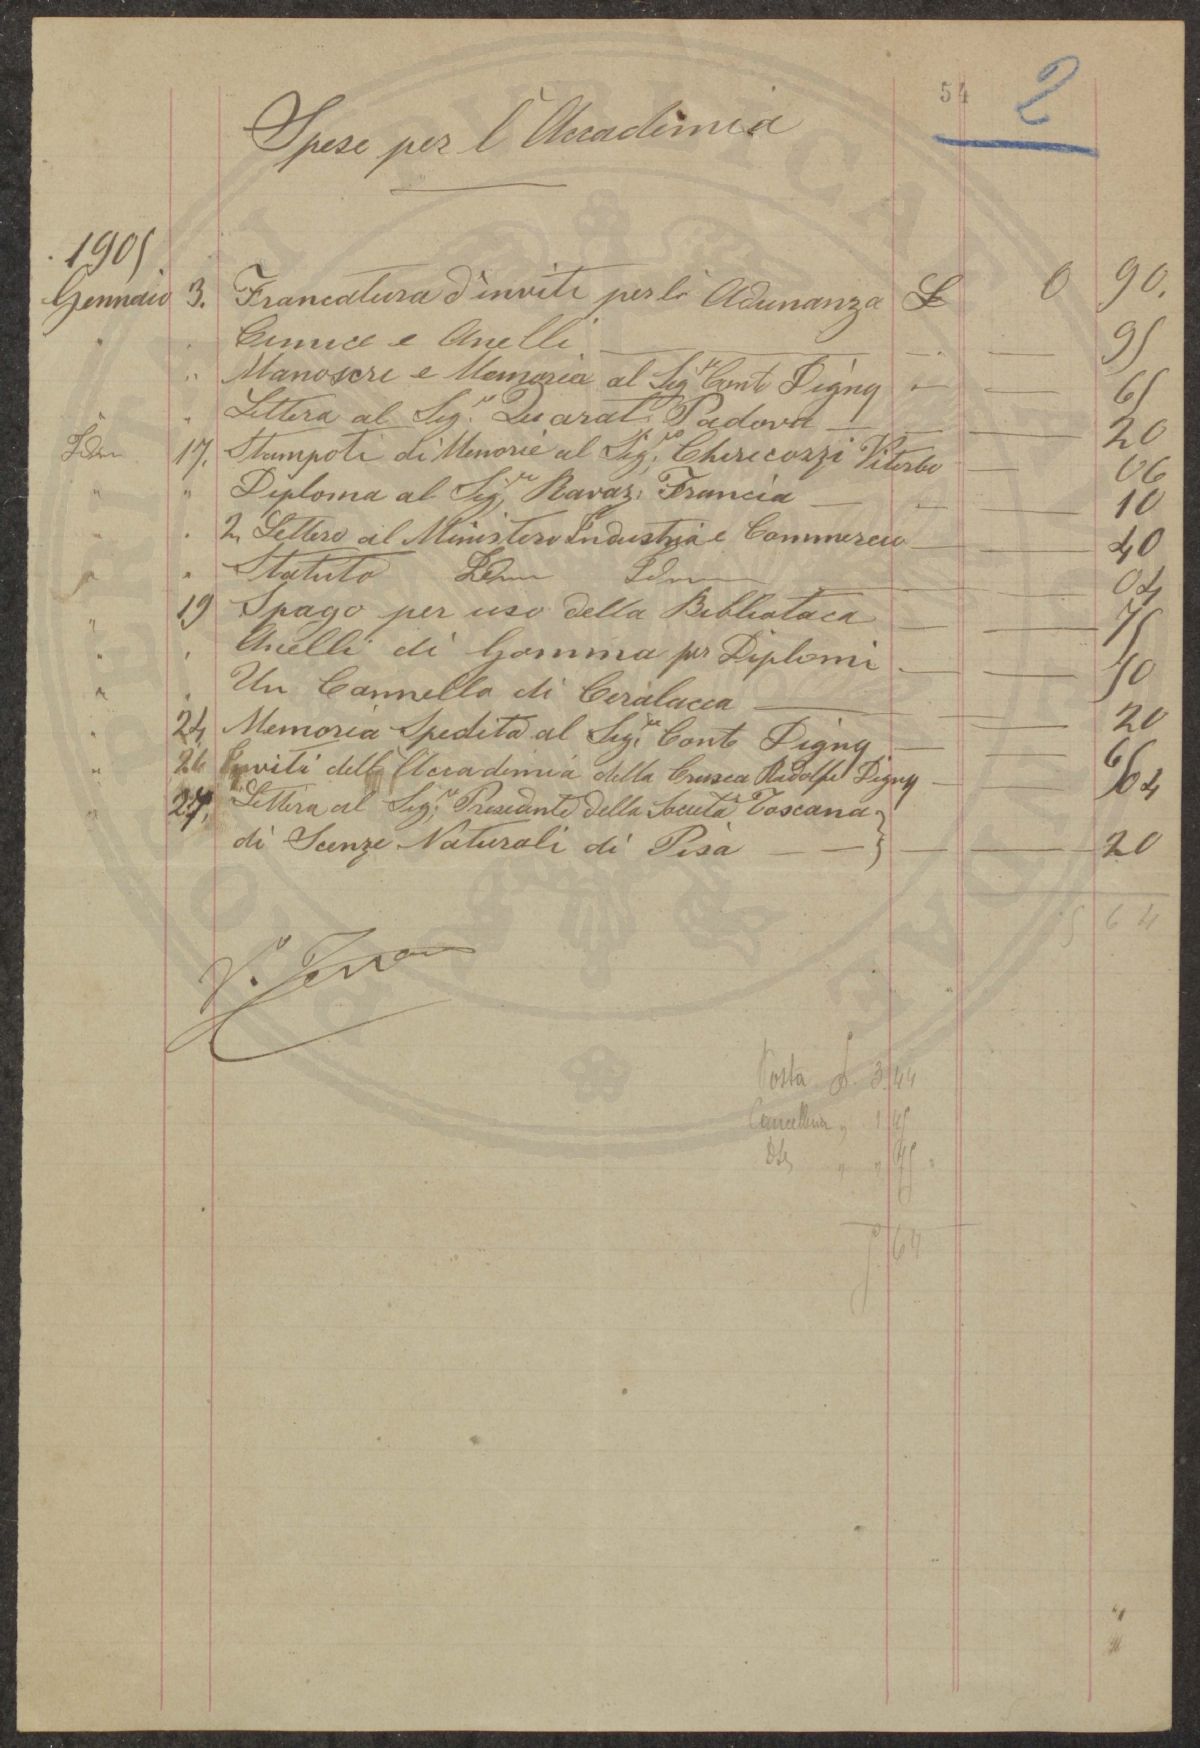 54
2
Spese per l'Accademia
1905
Gennaio 3. Francatura d'inviti per la Adunanza £ 0 90.
" . e Anelli — — 95
" Manoscri e Memoria al Sig.re Cont Digny " — 65
" . Lettera al Sig.r Padova — — 20
Idem 17. Stampati di Memorie al Sig.re Cherecozzi Viterbo — 06
" " Diploma al Sig.re Ravaz: Francia — " — 10
" . 2 Lettere al Ministero Industria e Commercio — — 40
" " Statuto Idem Idem — — 04
" 19 Spago per uso della Bibliotaca — — 75
" . Anelli di Gomma per Diplomi — — 50
" . Un Cannello di Ceralacca — — 20
" 24 Memoria Spedita al Sig.re Conte Digny — — 65
" 26 Inviti dell'Accademia della Crusca Ridolfi Digny — — 04
" 27. Lettera al Sig.r Presedente della Società Toscana
di Scenze Naturali di Pisa — — } — — 20
5 64
V.o
Posta £. 3.44
Cancelleria " 1 45
" " 75 "
5.64